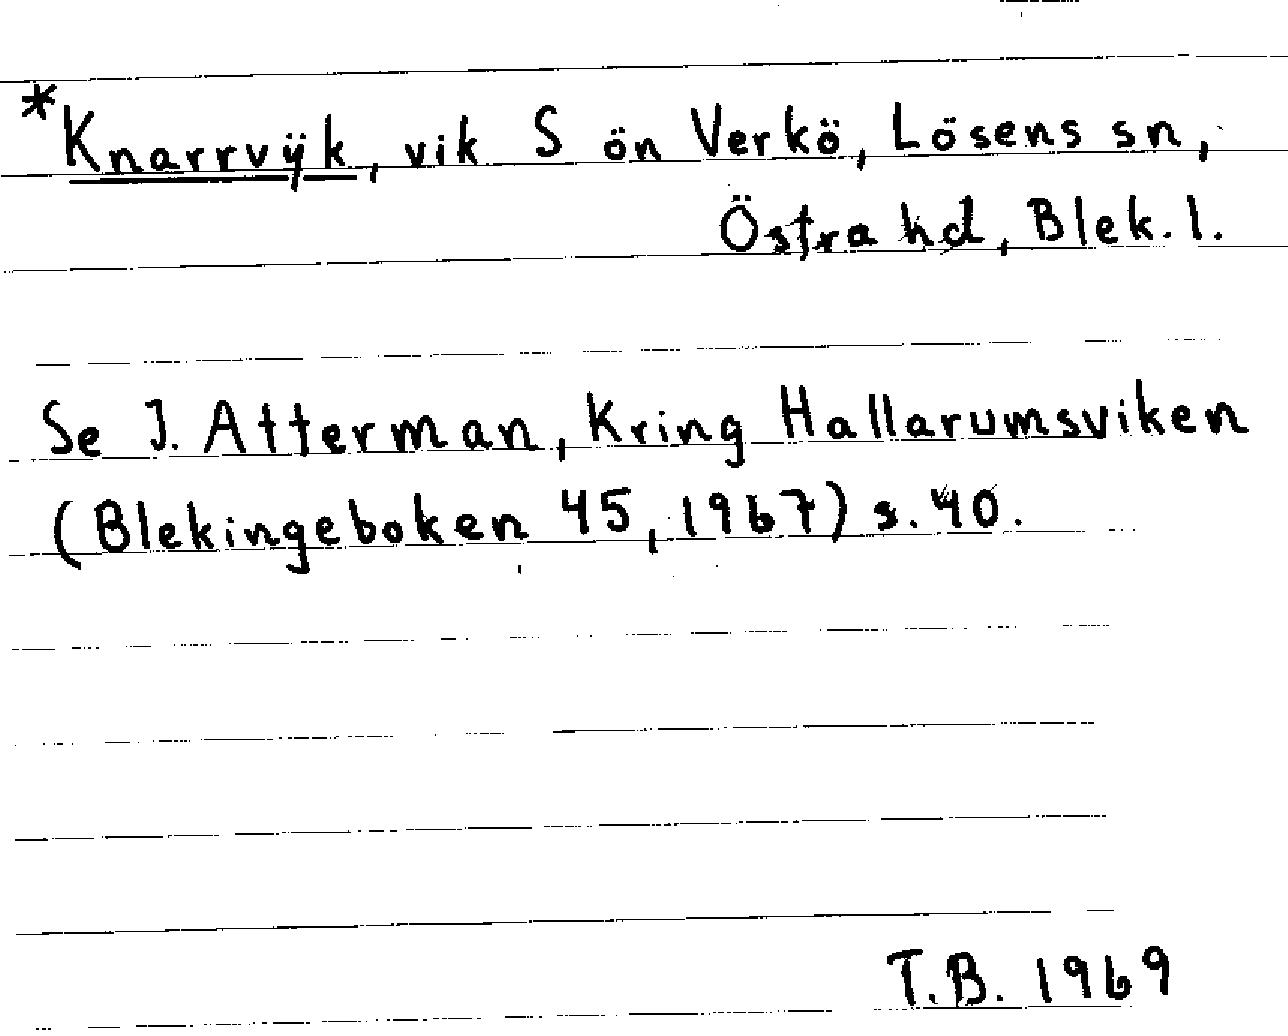 *Knarrvÿk, vik S ön Verkö, Lösens sn,
Östra hd, Blek. l.
Se J. Atterman, Kring Hallarumsviken
(Blekingeboken 45, 1967) s. 40.
T.B. 1969